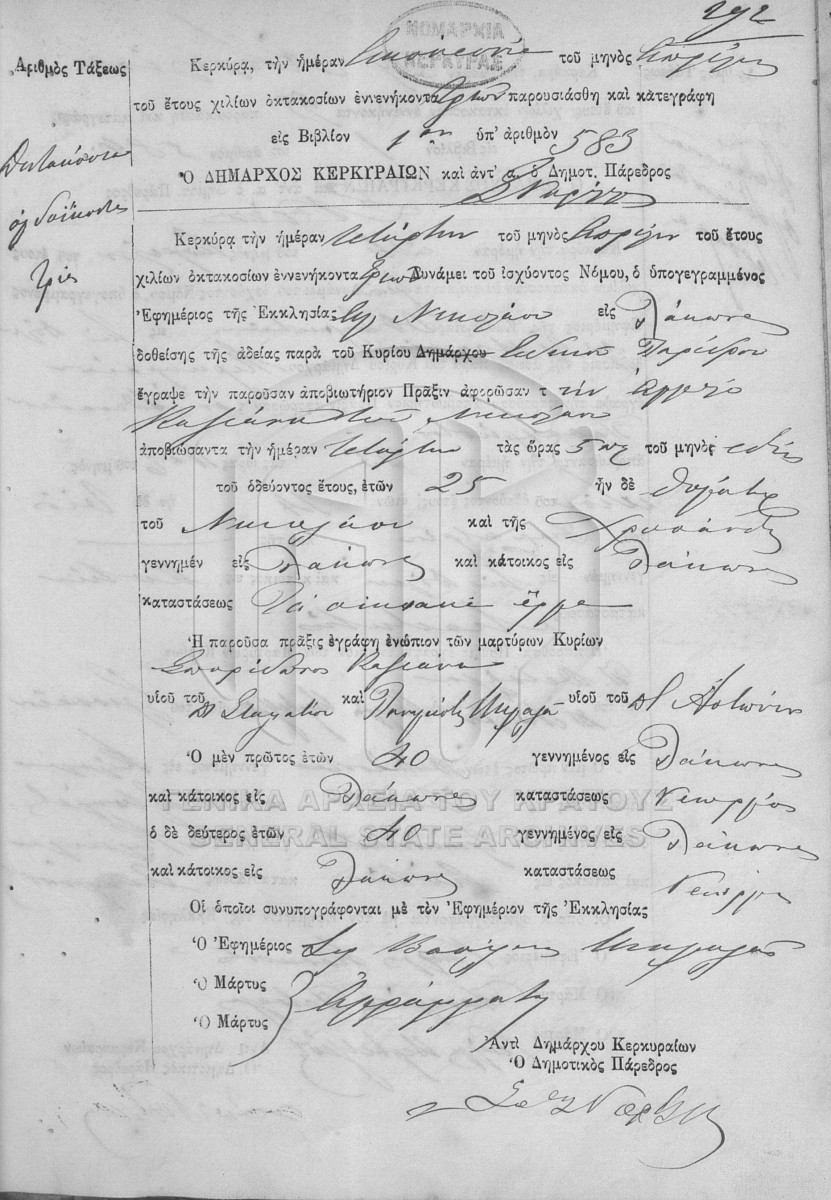 292
ΝΟΜΑΡΧΙΑ
ΚΕΡΚΥΡΑΣ
Ἀριθμὸς Τάξεως
Κερκύρᾳ, τὴν ἡμέραν τοῦ μηνὸς Ἀπριλίου
τοῦ ἔτους χιλίων ὀκτακοσίων ἐννενήκοντα τριῶν παρουσιάσθη καὶ κατεγράφη
εἰς Βιβλίον 1ον ὑπ' ἀριθμὸν 583
Πεντακόσια
ὀγδοήκοντα
τρία
Ὁ ΔΗΜΑΡΧΟΣ ΚΕΡΚΥΡΑΙΩΝ καὶ ἀντ' α. ὁ Δημοτ. Πάρεδρος
Κερκύρᾳ τὴν ἡμέραν τετάρτην τοῦ μηνὸς Ἀπριλίου τοῦ ἔτους
χιλίων ὀκτακοσίων ἐννενήκοντα τριῶν Δυνάμει τοῦ ἰσχύοντος Νόμου, ὁ ὑπογεγραμμένος
Ἐφημέριος τῆς Ἐκκλησίας Ἁγ Νικολάου εἰς Δάκωνες
δοθείσης τῆς ἀδείας παρὰ τοῦ Κυρίου Δημάρχου Εἰδικοῦ Παρέδρου
ἔγραψε τὴν παροῦσαν ἀποβιωτήριον Πρᾶξιν ἀφορῶσαν τ τὴν
Νικολάου
ἀποβιώσαντα τὴν ἡμέραν τετάρτην τὰς ὥρας 5 πμ τοῦ μηνὸς
τοῦ ὁδεύοντος ἔτους, ἐτῶν 25 ἦν δὲ θυγάτηρ
τοῦ Νικολάου καὶ τῆς Χρυσάνθης
γεννημέν εἰς Δάκωνες καὶ κάτοικος εἰς Δάκωνες
καταστάσεως Τὰ οἰκιακὰ ἔργα
Ἡ παροῦσα πρᾶξις ἐγράφη ἐνώπιον τῶν μαρτύρων Κυρίων
Σπυρίδωνος
υἱοῦ τοῦ Σταματίου καὶ Παναγιώτη υἱοῦ τοῦ Ἀντωνίου
Ὁ μὲν πρῶτος ἐτῶν 40 γεννημένος εἰς Δάκωνες
καὶ κάτοικος εἰς Δάκωνες καταστάσεως Γεωργός
ὁ δὲ δεύτερος ἐτῶν 40 γεννημένος εἰς Δάκωνες
καὶ κάτοικος εἰς Δάκωνες καταστάσεως Γεωργός
Οἱ ὁποῖοι συνυπογράφονται μὲ τὸν Ἐφημέριον τῆς Ἐκκλησίας
Ὁ Ἐφημέριος
Ὁ Μάρτυς
Ὁ Μάρτυς
Ἀγράμματοι
Ἀντὶ Δημάρχου Κερκυραίων
Ὁ Δημοτικὸς Πάρεδρος
ΓΕΝΙΚΑ ΑΡΧΕΙΑ ΤΟΥ ΚΡΑΤΟΥΣ
GENERAL STATE ARCHIVES